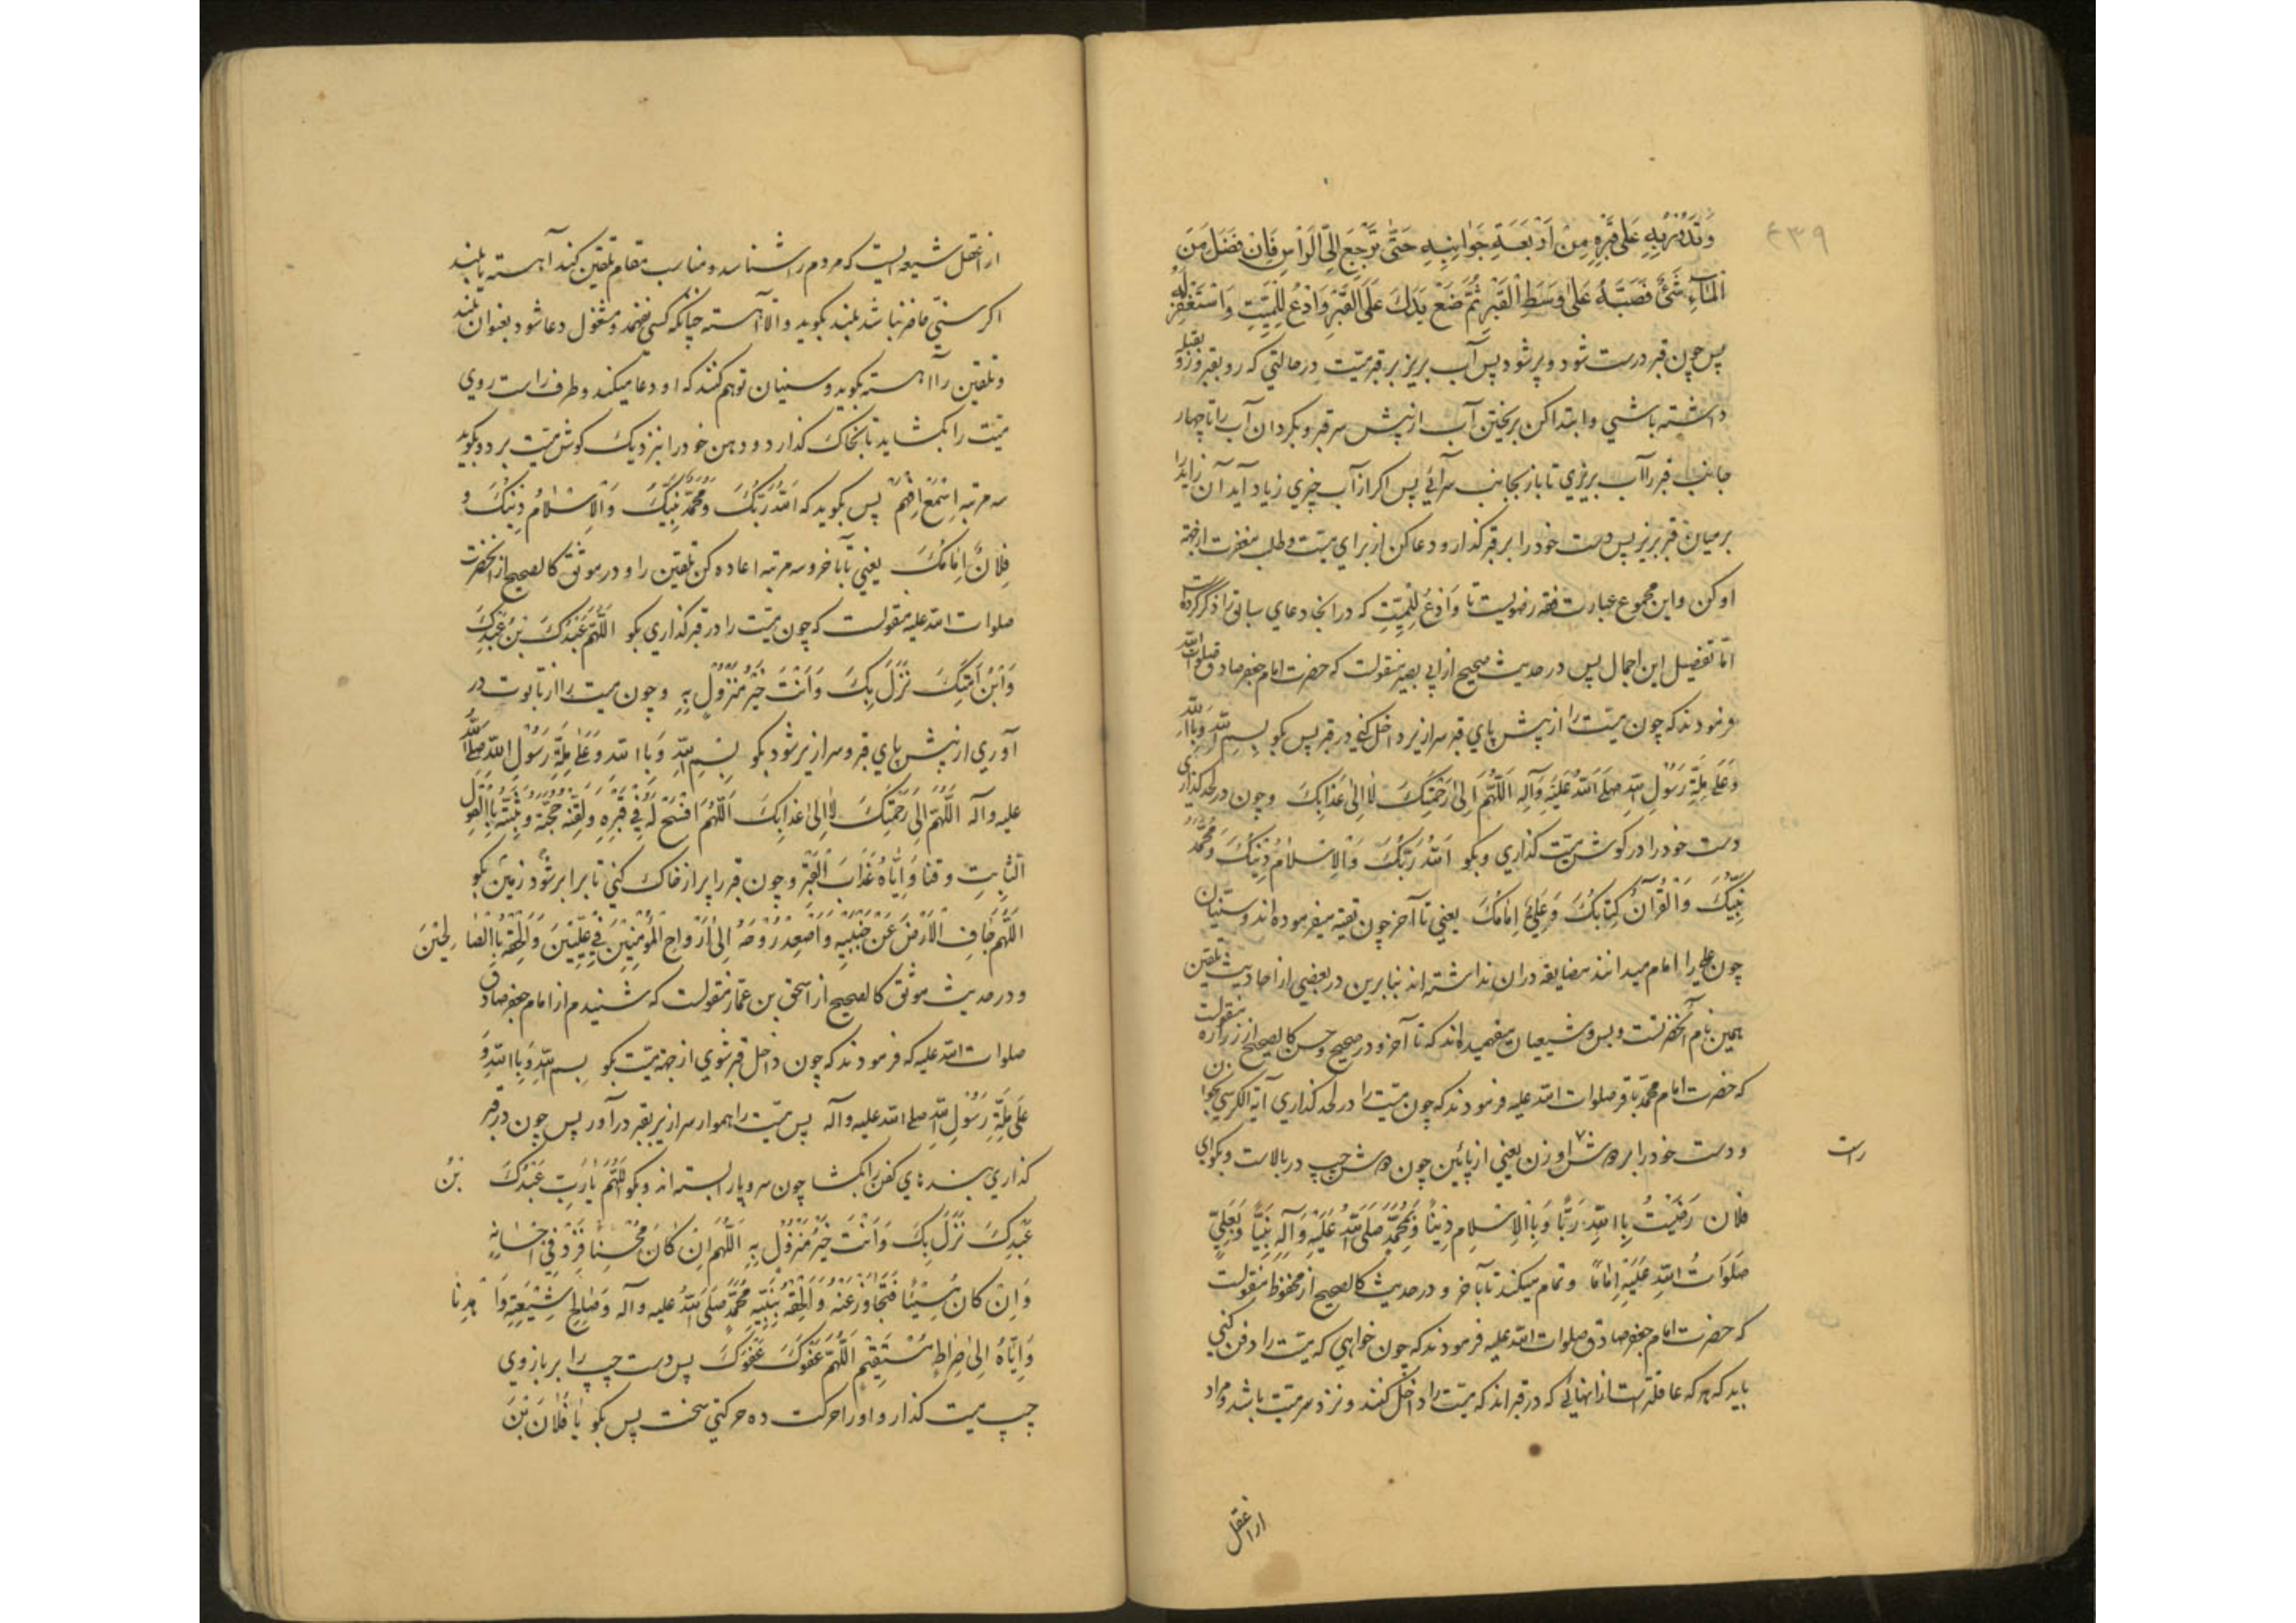 ۴۳۹
وَتَدُوْرُ بِهِ عَلٰى قَبْرِهِ مِنْ اَرْبَعَةِ جَوٰانِبِهِ حَتّٰى تَرْجِعَ اِلَى الرَّأسِ فَاِنْ فَضَلَ مِنَ
الْمٰاءِ شَئٌ فَصَبَّهُ عَلٰى وَسَطِ الْقَبْرِ ثُمَّ ضَعْ يَدَكَ عَلَى الْقَبْرِ وَادْعُ لِلْمَيِّتِ وَاسْتَغْفِرْ لَهُ
پس چون قبر درست شود و پر شود پس آب بریز بر قبر میّت در حالتی که رو بقبر و رو بقبله
داشته باشی و ابتدا کن بریختن آب از پیش سر قبر و بکردان آب را تا چهار
جانب قبر را آب بریزی تا باز بجانب سر آئی پس اکر از آب چیزی زیاد آید آن زاید را
بر میان قبر بریز پس دست خود را بر قبر کذار و دعا کن از برای میّت و طلب مغفرت از جهة
او کن و این مجموع عبارت فقه رضویست تا وَادْعُ لِلْمَيِّتِ که در انجا دعای سابق را ذکر کرده است
امّا تفصیل این اجمال پس در حدیث صحیح از ابی بصیر منقولست که حضرت امام جعفر صادق صلوات الله
فرمودند که چون میّت را از پیش پای قبر سرازیر داخل کنی در قبر پس بکو بِسْمِ اللهِ وَبِاللهِ
وَعَلٰى مِلَّةِ رَسُوْلِ اللهِ صَلَّى اللهُ عَلَيْهِ وَآلِهِ اَللّٰهُمَّ اِلٰى رَحْمَتِكَ لٰا اِلٰى عَذٰابِكَ و چون در لحد کذاری
دست خود را در کوش میّت کذاری و بکو اَللهُ رَبُّكَ وَالْاِسْلٰامُ دِيْنُكَ وَمُحَمَّدٌ
نَبِيُّكَ وَالْقُرْآنُ كِتٰابُكَ وَعَلِيٌّ اِمٰامُكَ یعنی تا آخر چون تقیّه میفرموده‌اند و سنّیان
چون علی را امام میدانند مضایقه در ان نداشته‌اند بنابرین در بعضی از احادیث تلقین
همین نام آنحضرتست و بس و شیعیان میفهمیده‌اند که تا آخر و در صحیح و حسن کالصحیح از زراره منقولست
که حضرت امام محمّد باقر صلوات الله علیه فرمودند که چون میّت را در لحد کذاری آیة الکرسی بخوان
و دست خود را بر دوش او زن یعنی از پائین چون دوش چپ در بالاست و بکو ای
راست
فلان رَضِيْتُ بِاللهِ رَبًّا وَبِالْاِسْلٰامِ دِيْنًا وَبِمُحَمَّدٍ صَلَّى اللهُ عَلَيْهِ وَآلِهِ نَبِيًّا وَبِعَلِيٍّ
صَلَوٰاتُ اللهِ عَلَيْهِ اِمٰامًا و تمام میکند تا بآخر و در حدیث کالصحیح از محفوظ منقولست
که حضرت امام جعفر صادق صلوات الله علیه فرمودند که چون خواهی که میّت را دفن کنی
باید که هر که عاقلتر است از انهائی که در قبراند که میّت را داخل کنند و نزد سر میّت باشد و مراد
از اعقل
از اعقل شیعه ایست که مردم را شناسد و مناسب مقام تلقین کند آهسته یا بلند
اکر سنّی حاضر نباشد بلند بکوید و الّا آهسته چنانکه کسی نفهمد و مشغول دعا شود بعنوان بلند
و تلقین را آهسته بکوید و سنیان توهم کنند که او دعا میکند و طرف راست روی
میّت را بکشاید تا بخاک کذارد و دهن خود را بنزدیک کوش میّت برد و بکوید
سه مرتبه اِسْمَعْ اِفْهَمْ پس بکوید که اَللهُ رَبُّكَ وَمُحَمَّدٌ نَبِيُّكَ وَالْاِسْلٰامُ دِيْنُكَ وَ
فُلٰانٌ اِمٰامُكَ یعنی تا بآخر و سه مرتبه اعاده کن تلقین را و در موثق کالصحیح از انحضرت
صلوات الله علیه منقولست که چون میّت را در قبر کذاری بکو اَللّٰهُمَّ عَبْدُكَ بْنُ عَبْدِكَ
وَابْنُ اَمَتِكَ نَزَلَ بِكَ وَاَنْتَ خَيْرُ مَنْزُوْلٍ بِهِ و چون میت را از تابوت در
آوری از پیش پای قبر و سرازیر شود بکو بِسْمِ اللهِ وَبِاللهِ وَعَلٰى مِلَّةِ رَسُوْلِ اللهِ صَلَّى اللهُ
علیه و آله اَللّٰهُمَّ اِلٰى رَحْمَتِكَ لٰا اِلٰى عَذٰابِكَ اَللّٰهُمَّ افْسَحْ لَهُ فِيْ قَبْرِهِ وَلَقِّنْهُ حُجَّتَهُ وَثَبِّتْهُ بِالْقَوْلِ
الثّٰابِتِ وَقِنٰا وَاِيّٰاهُ عَذٰابَ الْقَبْرِ و چون قبر را پر از خاک کنی تا برابر شود زمین بکو
اَللّٰهُمَّ جٰافِ الْاَرْضَ عَنْ جَنْبَيْهِ وَاَصْعِدْ رُوْحَهُ اِلٰى اَرْوٰاحِ الْمُؤْمِنِيْنَ فِيْ عِلِّيِّيْنَ وَاَلْحِقْهُ بِالصّٰالِحِيْنَ
و در حدیث موثق کالصحیح از اسحق بن عمّار منقولست که شنیدم از امام جعفر صادق
صلوات الله علیه که فرمودند که چون داخل قبر شوی از جهة میّت بکو بِسم اللهِ وَبِاللهِ وَ
عَلٰى مِلَّةِ رَسُوْلِ اللهِ صلی الله علیه و آله پس میّت را هموار سرازیر بقبر درآور پس چون در قبر
کذاری بندهای کفن را بکشا چون سر و پا را بسته‌اند و بکو اَللّٰهُمَّ يٰا رَبِّ عَبْدُكَ بْنُ
عَبْدِكَ نَزَلَ بِكَ وَاَنْتَ خَيْرُ مَنْزُوْلٍ بِهِ اَللّٰهُمَّ اِنْ كٰانَ مُحْسِنًا فَزِدْ فِيْ اِحْسٰانِهِ
وَاِنْ كٰانَ مُسِيْئًا فَتَجٰاوَزْ عَنْهُ وَاَلْحِقْهُ بِنَبِيِّهِ مُحَمَّدٍ صَلَّى اللهُ علیه و آله وَصٰالِحِ شِيْعَتِهِ وَاهْدِنٰا
وَاِيّٰاهُ اِلٰى صِرٰاطٍ مُسْتَقِيْمٍ اَللّٰهُمَّ عَفْوَكَ عَفْوَكَ پس دست چپ را بر بازوی
چپ میت کذار و او را حرکت ده حرکتی سخت پس بکو يٰا فُلٰانَ بْنَ